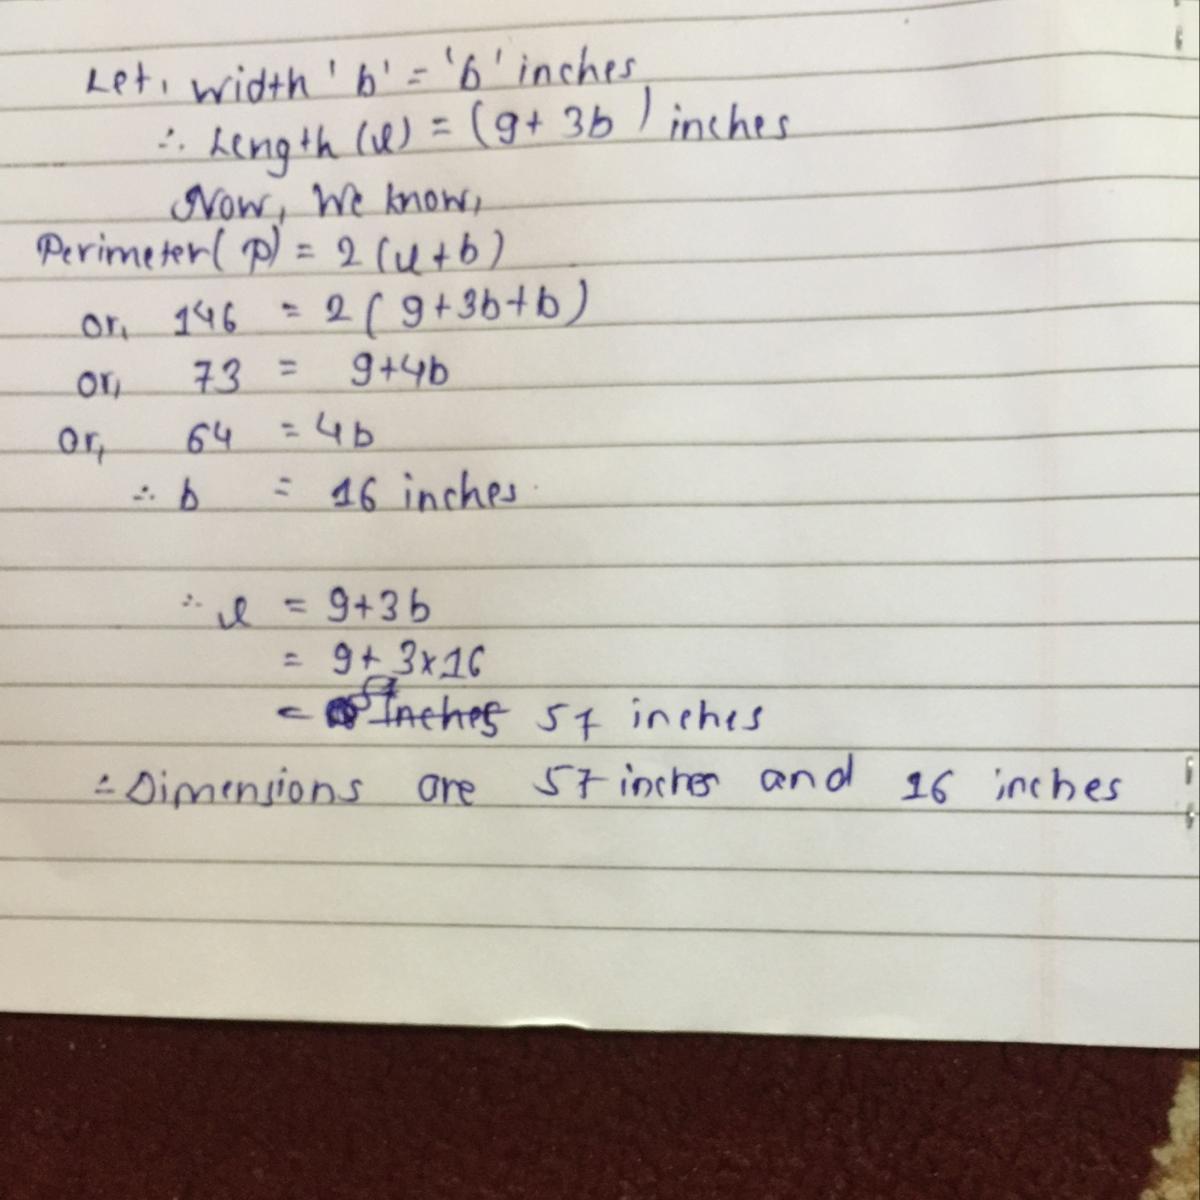 Let, width 'b' = 'b' inches
∴ Length (l) = (9+ 3b) inches
Now, We know,
Perimeter(p) = 2 (l+b)
or, 146 = 2( 9+3b+b)
or, 73 = 9+4b
or, 64 = 4b
∴ b = 16 inches
∴ l = 9+3b
= 9+ 3×16
= inches 57 inches
∴ Dimensions are 57 inches and 16 inches